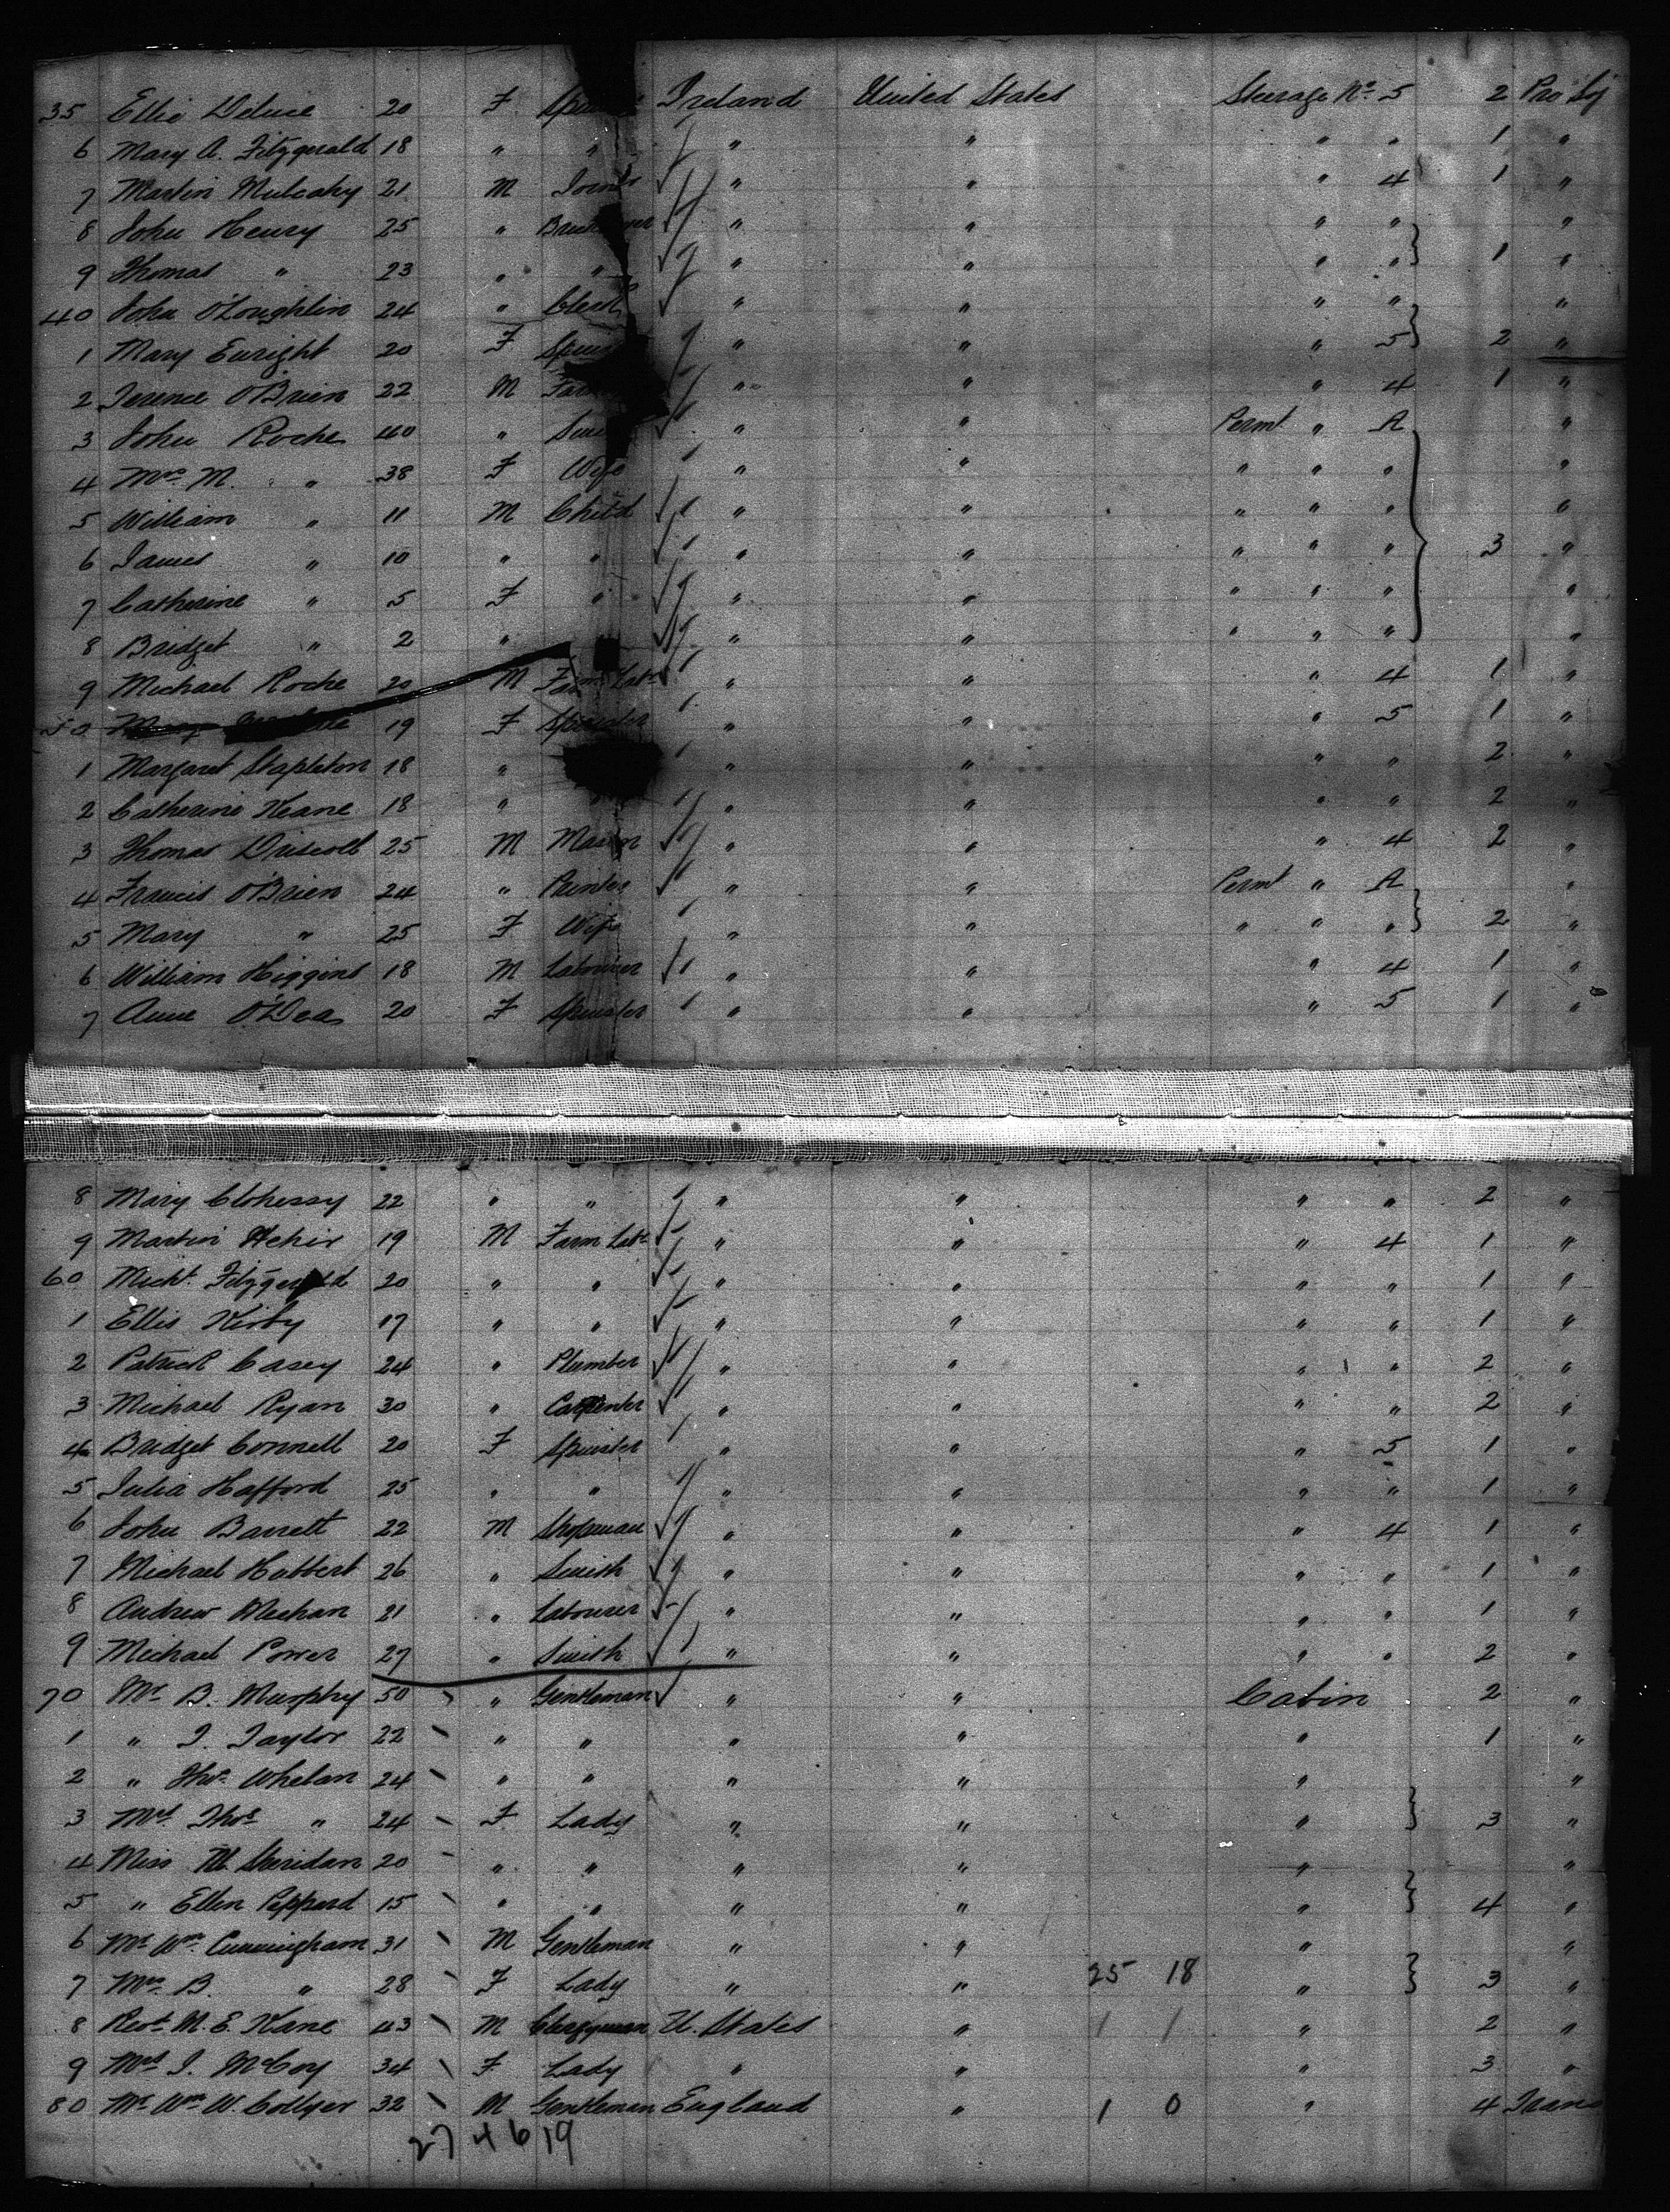 35 Ellie Deluce 20 F Ireland United States Steerage No 5 2 Pro Sj
6 Mary A. Fitzgerald 18 " " " " " " 1 "
7 Martin Mulcahy 21 M " " " 4 1 "
8 John Henry 25 " " " " " "
9 Thomas " 23 " " " " " " 1 "
40 John O'Loughlin 24 " Clerk " " " " "
1 Mary Enright 20 F " " " 5 2 "
2 Terence O'Brien 22 M " " " 4 1 "
3 John Roche 40 " " " Permt " A "
4 Mrs M. " 38 F Wife " " " " " "
5 William " 11 M Child " " " " " "
6 James " 10 " " " " " " " 3 "
7 Catherine " 5 F " " " " " " "
8 Bridget " 2 " " " " " " "
9 Michael Roche 20 M Farm Labr " " " 4 1 "
50 19 F Spinster " " " 5 1 "
1 Margaret Stapleton 18 " " " " " 2 "
2 Catherine Keane 18 " " " " " " 2 "
3 Thomas Driscoll 25 M Mason " " " 4 2 "
4 Francis O'Brien 24 " " " Permt " A "
5 Mary " 25 F Wife " " " " " 2 "
6 William Higgins 18 M Labourer " " " 4 1 "
7 Anne O'Dea 20 F Spinster " " " 5 1 "
8 Mary Clohessy 22 " " " " " " 2 "
9 Martin Hehir 19 M Farm Labr " " " 4 1 "
60 Michl. Fitzgerald 20 " " " " " " 1 "
1 Ellis Kirby 17 " " " " " " 1 "
2 Patrick Casey 24 " Plumber " " " " 2 "
3 Michael Ryan 30 " Carpenter " " " " 2 "
4 Bridget Connell 20 F Spinster " " " 5 1 "
5 Julia Hafford 25 " " " " " " 1 "
6 John Barrett 22 M Shopman " " " 4 1 "
7 Michael Hubbert 26 " Smith " " " " 1 "
8 Andrew Meehan 21 " Labourer " " " " 1 "
9 Michael Power 27 " Smith " " " " 2 "
70 Mr B. Murphy 50 " Gentleman " " Cabin 2 "
1 " J. Taylor 22 " " " " " 1 "
2 " Thos. Whelan 24 " " " " " "
3 Mrs Thos " 24 F Lady " " " 3 "
4 Miss M. Sheridan 20 " " " " " "
5 " Ellen Peppard 15 " " " " " 4 "
6 Mr Wm. Cunningham 31 M Gentleman " " " "
7 Mrs B. " 28 F Lady " " 25 18 " 3 "
8 Revt. M. E. Kane 43 M Clergyman U. States " 1 1 " 2 "
9 Mrs J. McCoy 34 F Lady " " " 3 "
80 Mr Wm W. Collyer 32 M Gentleman England " 1 0 " 4 Trans
27 4 6 19